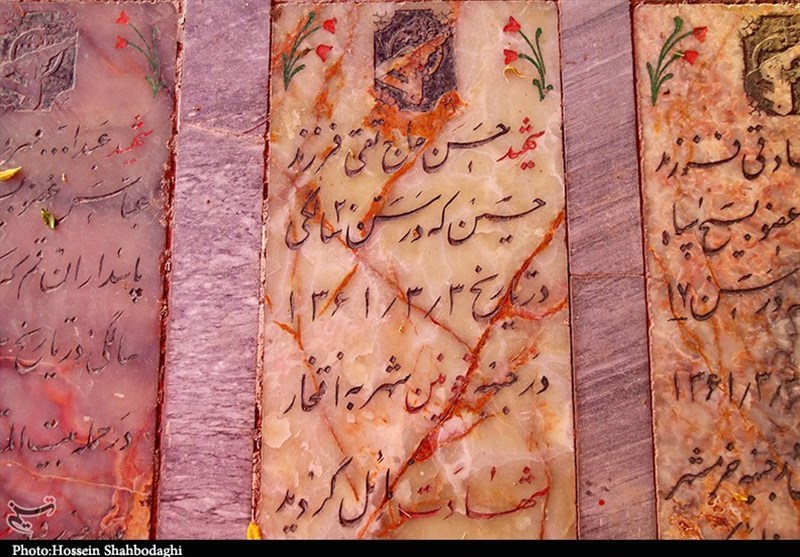 شهید حسن حاج تقی فرزند
حسین که در سن ۲۰ سالگی
در تاریخ ۱۳۶۱/۳/۳
در جبهه خونین شهر به افتخار
شهادت نائل گردید
صادقی فرزند
عضو بسیج سپاه
که در سن ۱۷
۱۳۶۱/۳/۳
در جبهه خرمشهر
شهید عبدا...
عباس عضو
پاسداران قم که
سالگی در تاریخ
در حمله بیت
تسنیم
Photo:Hossein Shahbodaghi